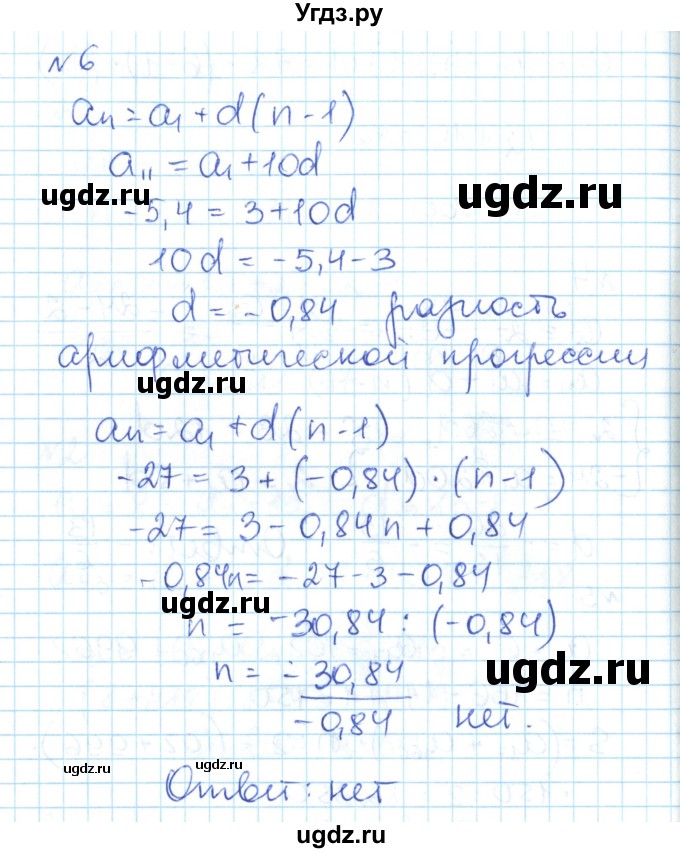 Угдз.ру
№6
aₙ = a₁ + d(n-1)
a₁₁ = a₁ + 10d
ugdz.ru
ugdz.ru
-5,4 = 3+10d
10d = -5,4-3
d = -0,84 разность
арифметической прогрессии
ugdz.ru
aₙ = a₁ + d(n-1)
-27 = 3 + (-0,84) · (n-1)
-27 = 3 - 0,84n + 0,84
-0,84n = -27-3-0,84
ugdz.ru
n = -30,84 : (-0,84)
n = -30,84/-0,84 нет.
ugdz.ru
ugdz.ru
ugdz.ru
Ответ: нет
ugdz.ru